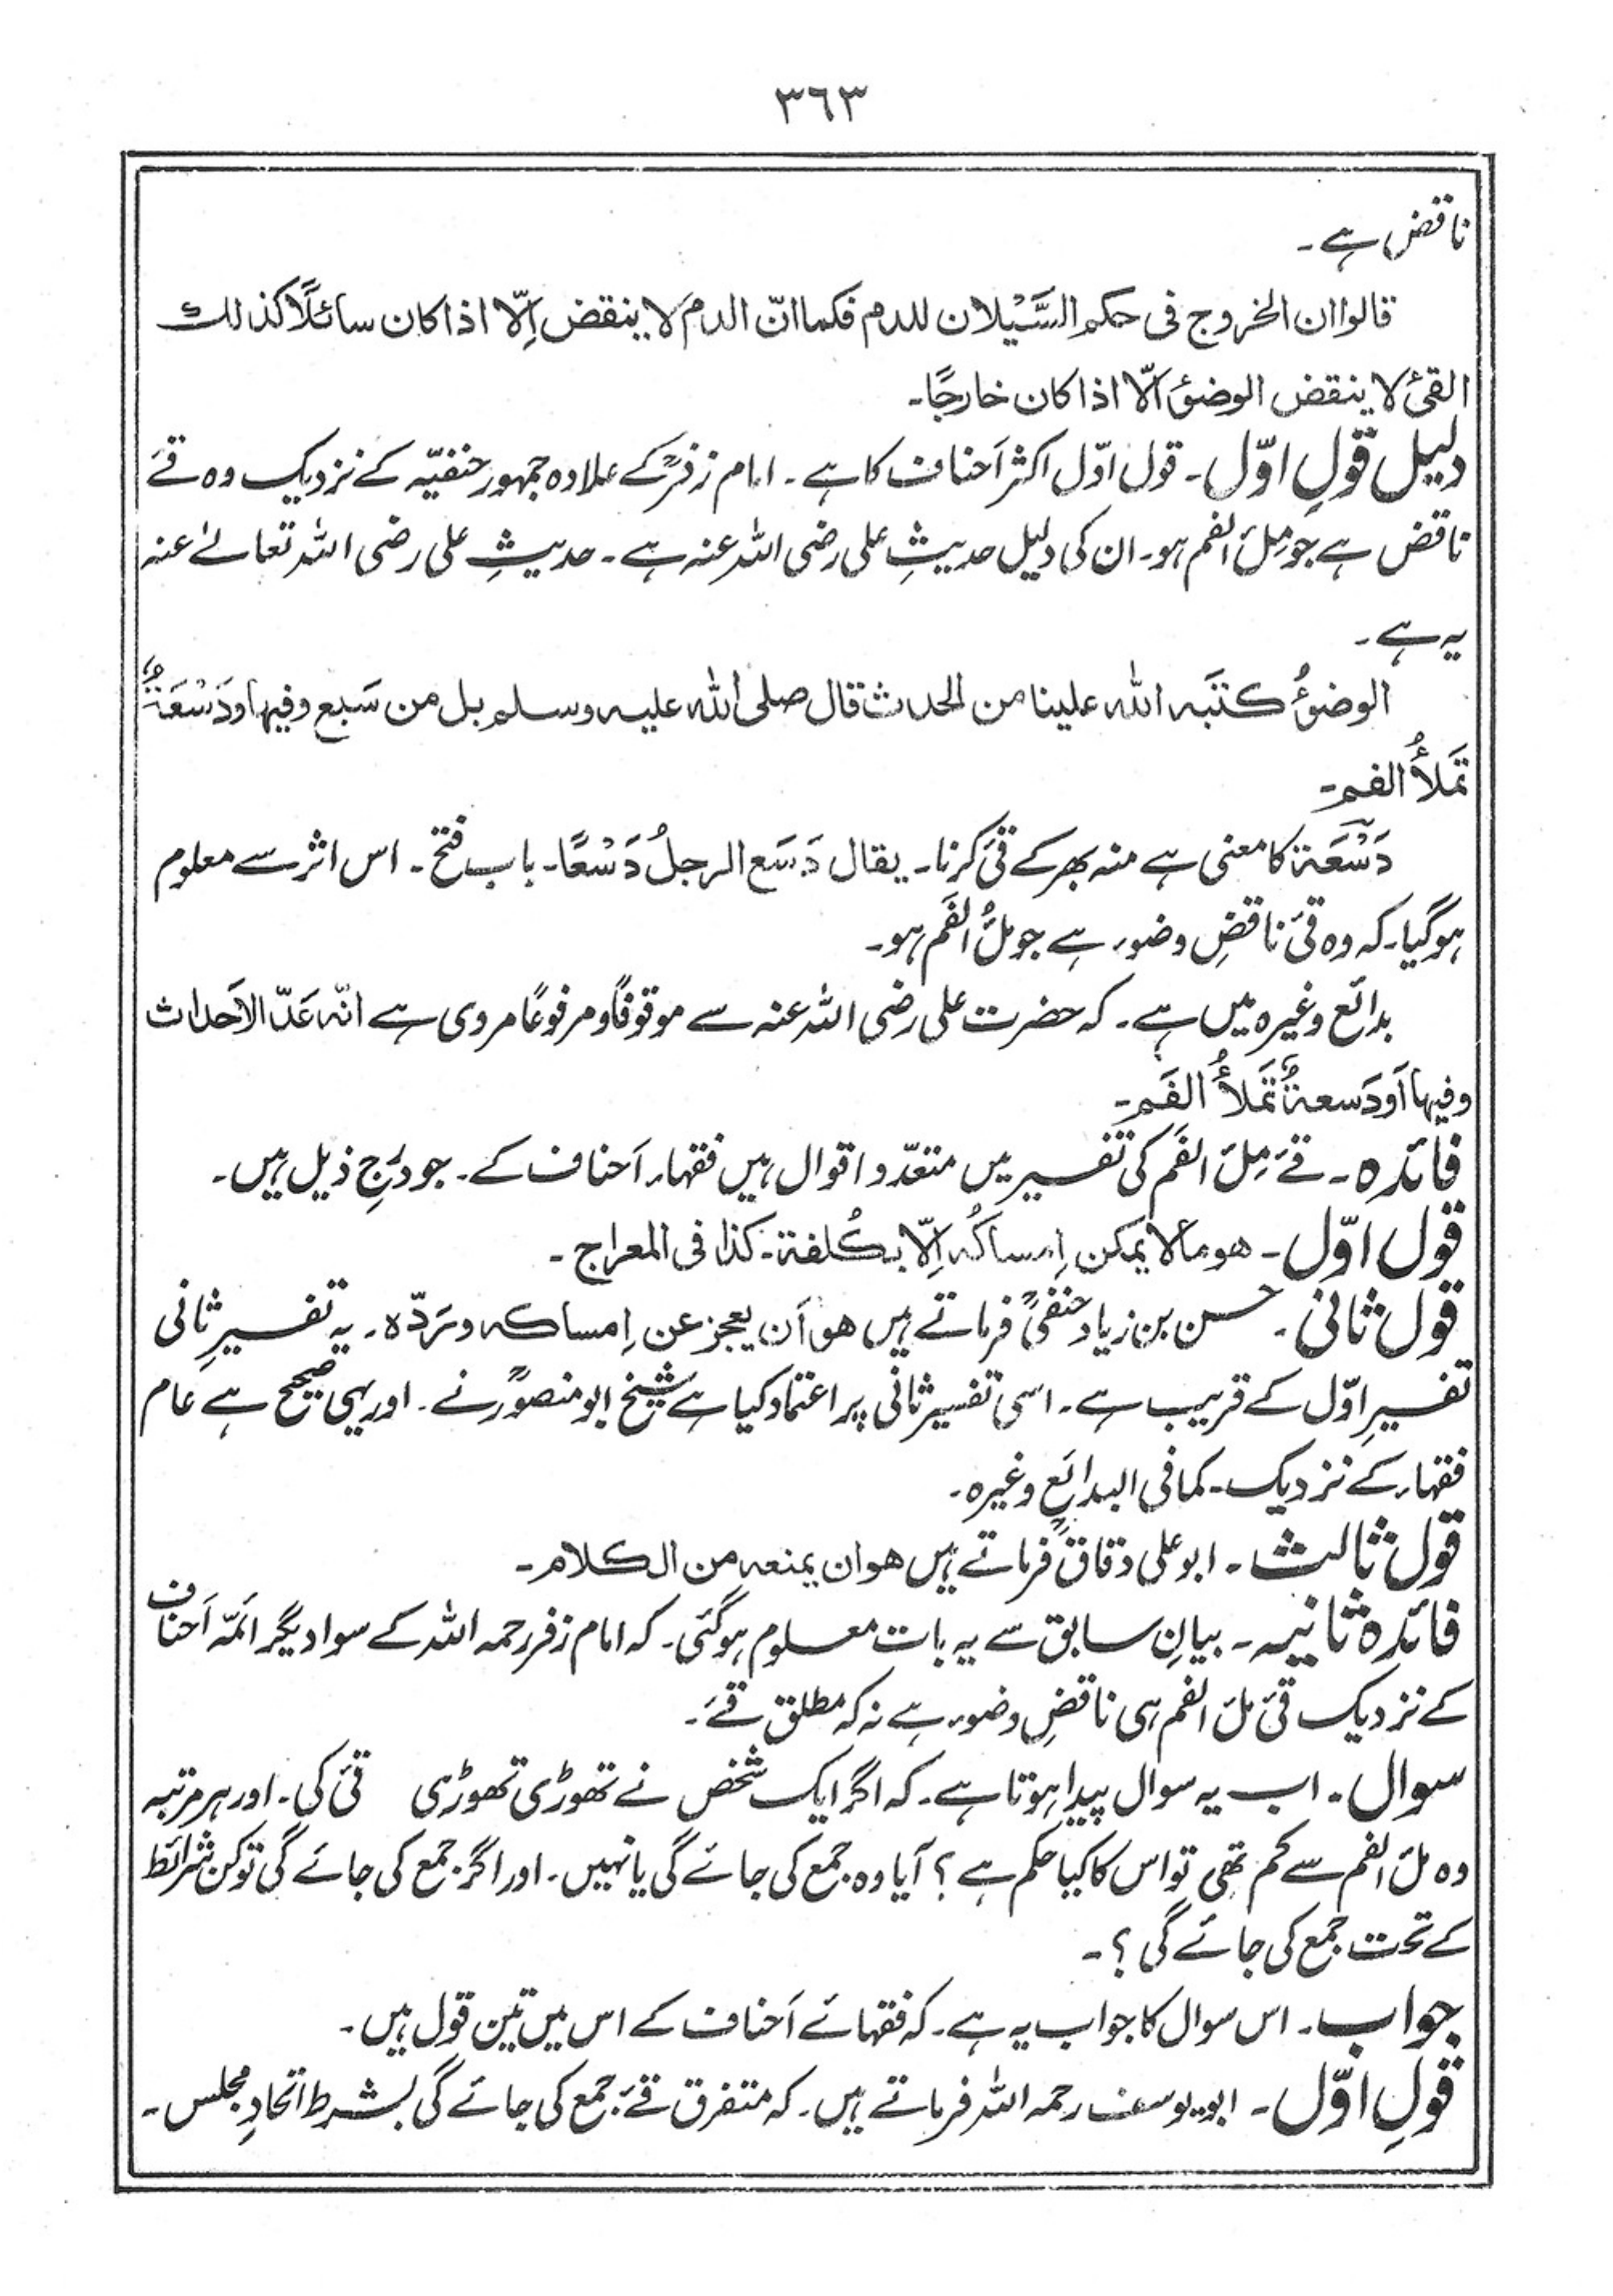 ٣٦٣
ناقض ہے۔
قالوا ان الخروج فی حکم السَّیْلان للدم فکما انّ الدم لا ینقض اِلّا اذا کان سائلًا کذلك
القئ لا ینقض الوضئ اَلّا اذا کان خارجًا۔
دلیل قولِ اوّل۔ قول اوّل اکثر اَحناف کا ہے۔ امام زفرؒ کے علاوہ جمہور حنفیّہ کے نزدیک وہ قے
ناقض ہے جو مِلئ الفم ہو۔ ان کی دلیل حدیثِ علی رضی اللہ عنہ ہے۔ حدیثِ علی رضی اللہ تعالےٰ عنہ
یہ ہے۔
الوضئُ کتَبَہ اللہ علینا من الحدث قال صلی اللہ علیہ وسلم بل من سَبع وفیہا اودَسْعَۃٌ
تَملأُ الفم۔
دَسْعَۃ کا معنی ہے منہ بھر کے قئ کرنا۔ یقال دَسَع الرجلُ دَسْعًا۔ باب فتح۔ اس اثر سے معلوم
ہوگیا۔ کہ وہ قئ ناقضِ وضوء ہے جو ملُ الفَم ہو۔
بدائع وغیرہ میں ہے۔ کہ حضرت علی رضی اللہ عنہ سے موقوفًا و مرفوعًا مروی ہے انّہ عَدّ الاَحداث
وفیہا اَودَسعۃٌ تَملأُ الفَم۔
فائدہ۔ قے مِلئ الفَم کی تفسیر میں متعدّد اقوال ہیں فقہاء اَحناف کے۔ جو دَرجِ ذیل ہیں۔
قول اوّل۔ ھو مالا یمکن اِمساکُہ اِلّا بکُلفۃ۔ کذا فی المعراج۔
قول ثانی۔ حسن بن زیاد حنفیؒ فرماتے ہیں ھو اَن یعجز عن اِمساکہ و رَدّہ۔ یہ تفسیرِ ثانی
تفسیرِ اوّل کے قریب ہے۔ اسی تفسیر ثانی پر اعتماد کیا ہے شیخ ابو منصورؒ نے۔ اور یہی صحیح ہے عام
فقہاء کے نزدیک۔ کما فی البدائع وغیرہ۔
قول ثالث۔ ابو علی دقاقؒ فرماتے ہیں ھو ان یمنعہ من الکلام۔
فائدہ ثانیہ۔ بیانِ سابق سے یہ بات معلوم ہوگئی۔ کہ امام زفر رحمہ اللہ کے سوا دیگر ائمّہ اَحناف
کے نزدیک قئ ملئ الفم ہی ناقضِ وضوء ہے نہ کہ مطلق قے۔
سوال۔ اب یہ سوال پیدا ہوتا ہے۔ کہ اگر ایک شخص نے تھوڑی تھوڑی قئ کی۔ اور ہر مرتبہ
وہ ملئ الفم سے کم تھی تو اس کا کیا حکم ہے؟ آیا وہ جمع کی جائے گی یا نہیں۔ اور اگر جمع کی جائے گی تو کن شرائط
کے تحت جمع کی جائے گی؟۔
جواب۔ اس سوال کا جواب یہ ہے۔ کہ فقہائے اَحناف کے اس میں تین قول ہیں۔
قولِ اوّل۔ ابویوسف رحمہ اللہ فرماتے ہیں۔ کہ متفرق قے جمع کی جائے گی بشرط اتحادِ مجلس۔